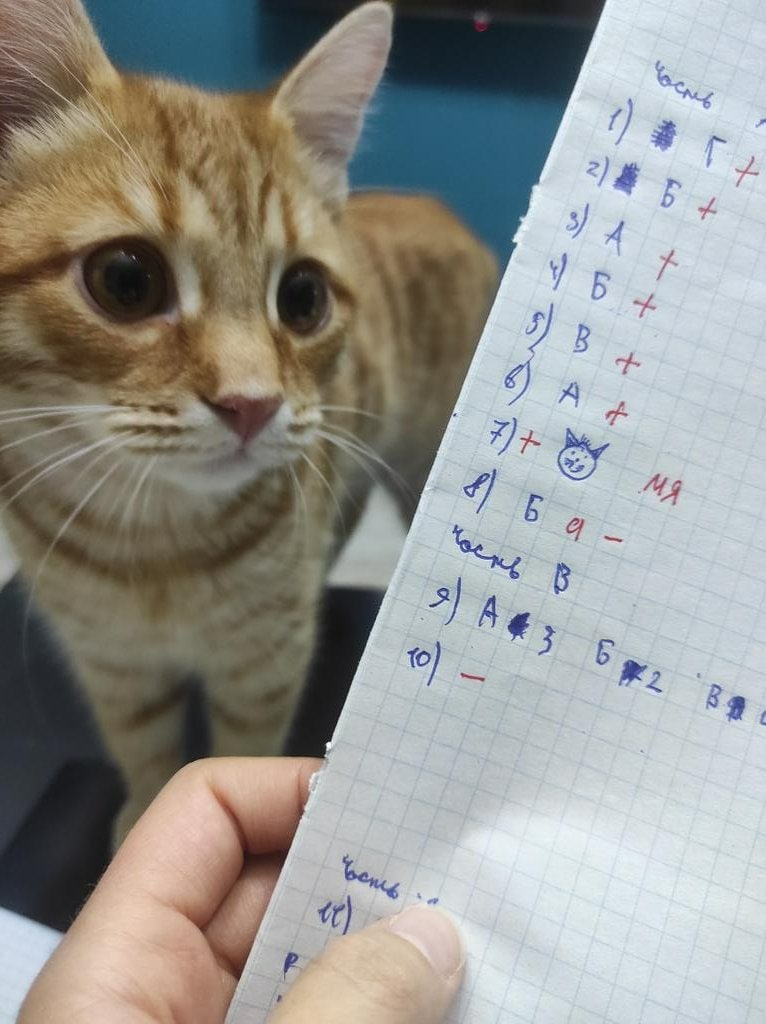 Часть
1) Г +
2) Б +
3) А +
4) Б +
5) В +
6) А +
7) + мя
8) Б а -
Часть В
9) А 3 Б 2 В
10) -
Часть
11)